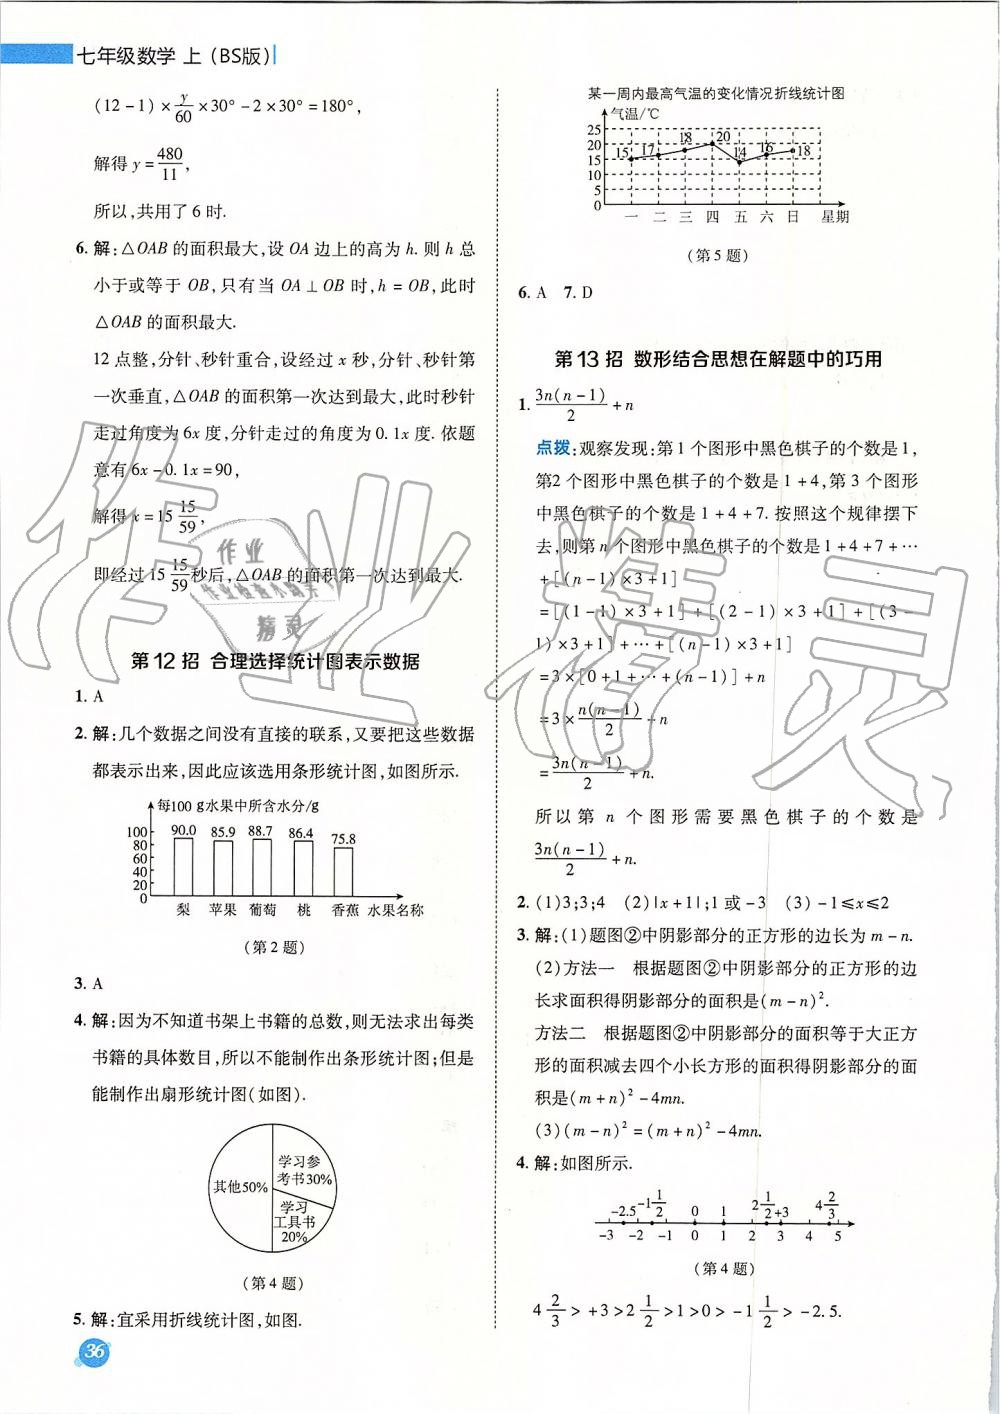 七年级数学 上（BS版）
(12-1)×y/60×30°-2×30°=180°,
解得 y=480/11,
所以,共用了 6 时.
6. 解:△OAB 的面积最大,设 OA 边上的高为 h. 则 h 总
小于或等于 OB,只有当 OA⊥OB 时,h=OB,此时
△OAB 的面积最大.
12 点整,分针、秒针重合,设经过 x 秒,分针、秒针第
一次垂直,△OAB 的面积第一次达到最大,此时秒针
走过角度为 6x 度,分针走过的角度为 0.1x 度. 依题
意有 6x-0.1x=90,
解得 x=15 15/59,
即经过 15 15/59 秒后,△OAB 的面积第一次达到最大.
第 12 招 合理选择统计图表示数据
1. A
2. 解:几个数据之间没有直接的联系,又要把这些数据
都表示出来,因此应该选用条形统计图,如图所示.
每100 g水果中所含水分/g
100 80 60 40 20 0
90.0 85.9 88.7 86.4 75.8
梨 苹果 葡萄 桃 香蕉 水果名称
(第 2 题)
3. A
4. 解:因为不知道书架上书籍的总数,则无法求出每类
书籍的具体数目,所以不能制作出条形统计图;但是
能制作出扇形统计图(如图).
其他50%
学习参
考书30%
学习
工具书
20%
(第 4 题)
5. 解:宜采用折线统计图,如图.
36
某一周内最高气温的变化情况折线统计图
气温/℃
25 20 15 10 5 0
15 17 18 20 14 16 18
一 二 三 四 五 六 日 星期
(第 5 题)
6. A 7. D
第 13 招 数形结合思想在解题中的巧用
1. 3n(n-1)/2+n
点拨:观察发现:第 1 个图形中黑色棋子的个数是 1,
第2 个图形中黑色棋子的个数是 1+4,第 3 个图形
中黑色棋子的个数是 1+4+7. 按照这个规律摆下
去,则第 n 个图形中黑色棋子的个数是 1+4+7+…
+[(n-1)×3+1]
=[(1-1)×3+1]+[(2-1)×3+1]+[(3-
1)×3+1]+…+[(n-1)×3+1]
=3×[0+1+…+(n-1)]+n
=3×n(n-1)/2+n
=3n(n-1)/2+n.
所以第 n 个图形需要黑色棋子的个数是
3n(n-1)/2+n.
2. (1)3;3;4 (2)|x+1|;1 或-3 (3)-1≤x≤2
3. 解:(1)题图②中阴影部分的正方形的边长为 m-n.
(2)方法一 根据题图②中阴影部分的正方形的边
长求面积得阴影部分的面积是(m-n)².
方法二 根据题图②中阴影部分的面积等于大正方
形的面积减去四个小长方形的面积得阴影部分的面
积是(m+n)²-4mn.
(3)(m-n)²=(m+n)²-4mn.
4. 解:如图所示.
-2.5 -1 1/2 0 1 2 1/2 +3 4 2/3
-3 -2 -1 0 1 2 3 4 5
(第 4 题)
4 2/3>+3>2 1/2>1>0>-1 1/2>-2.5.
作业精灵
作业
作业检查小助手
精灵